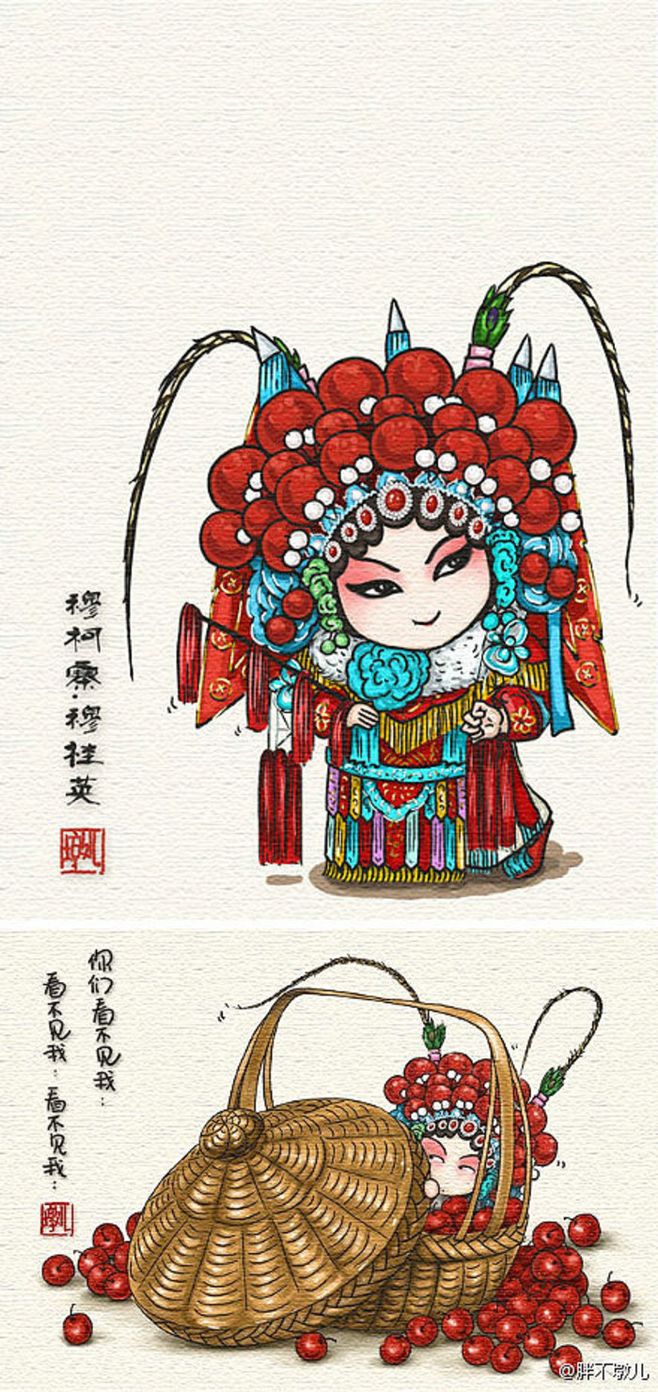 穆柯寨·穆桂英
你们看不见我…
看不见我…看不见我…
@胖不墩儿